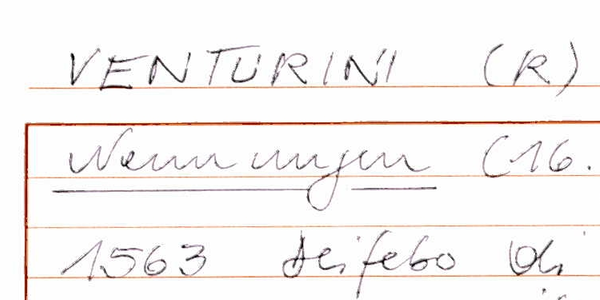 VENTURINI (R)
Nennungen (16.
1563 Deifebo di